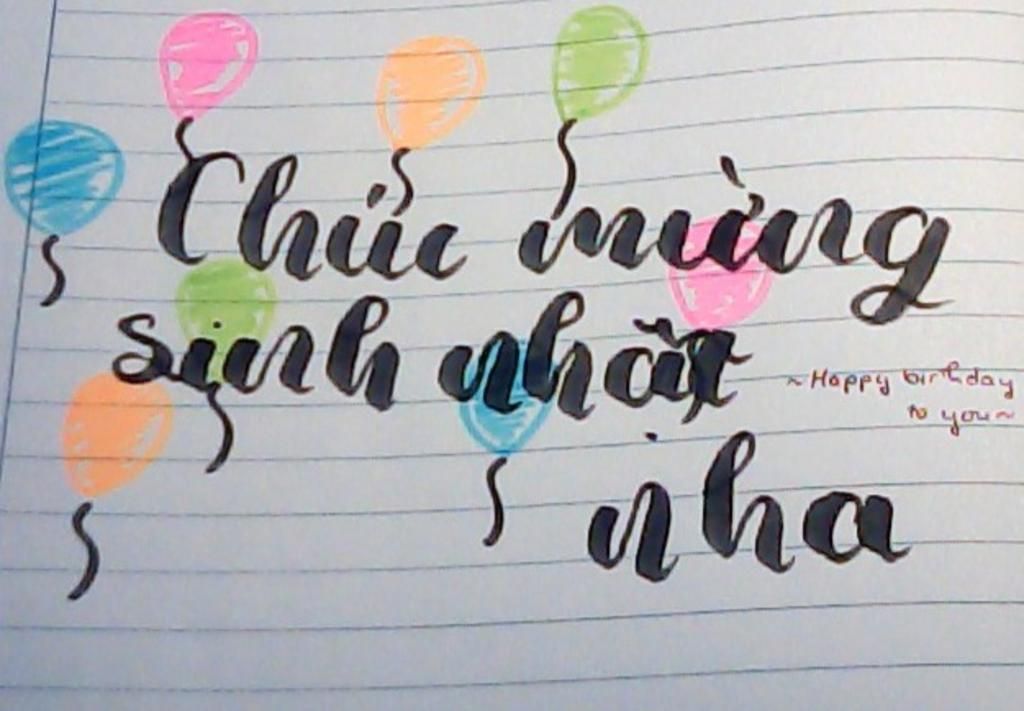 Chúc mừng
sinh nhật
~ Happy birthday
to you ~
nha